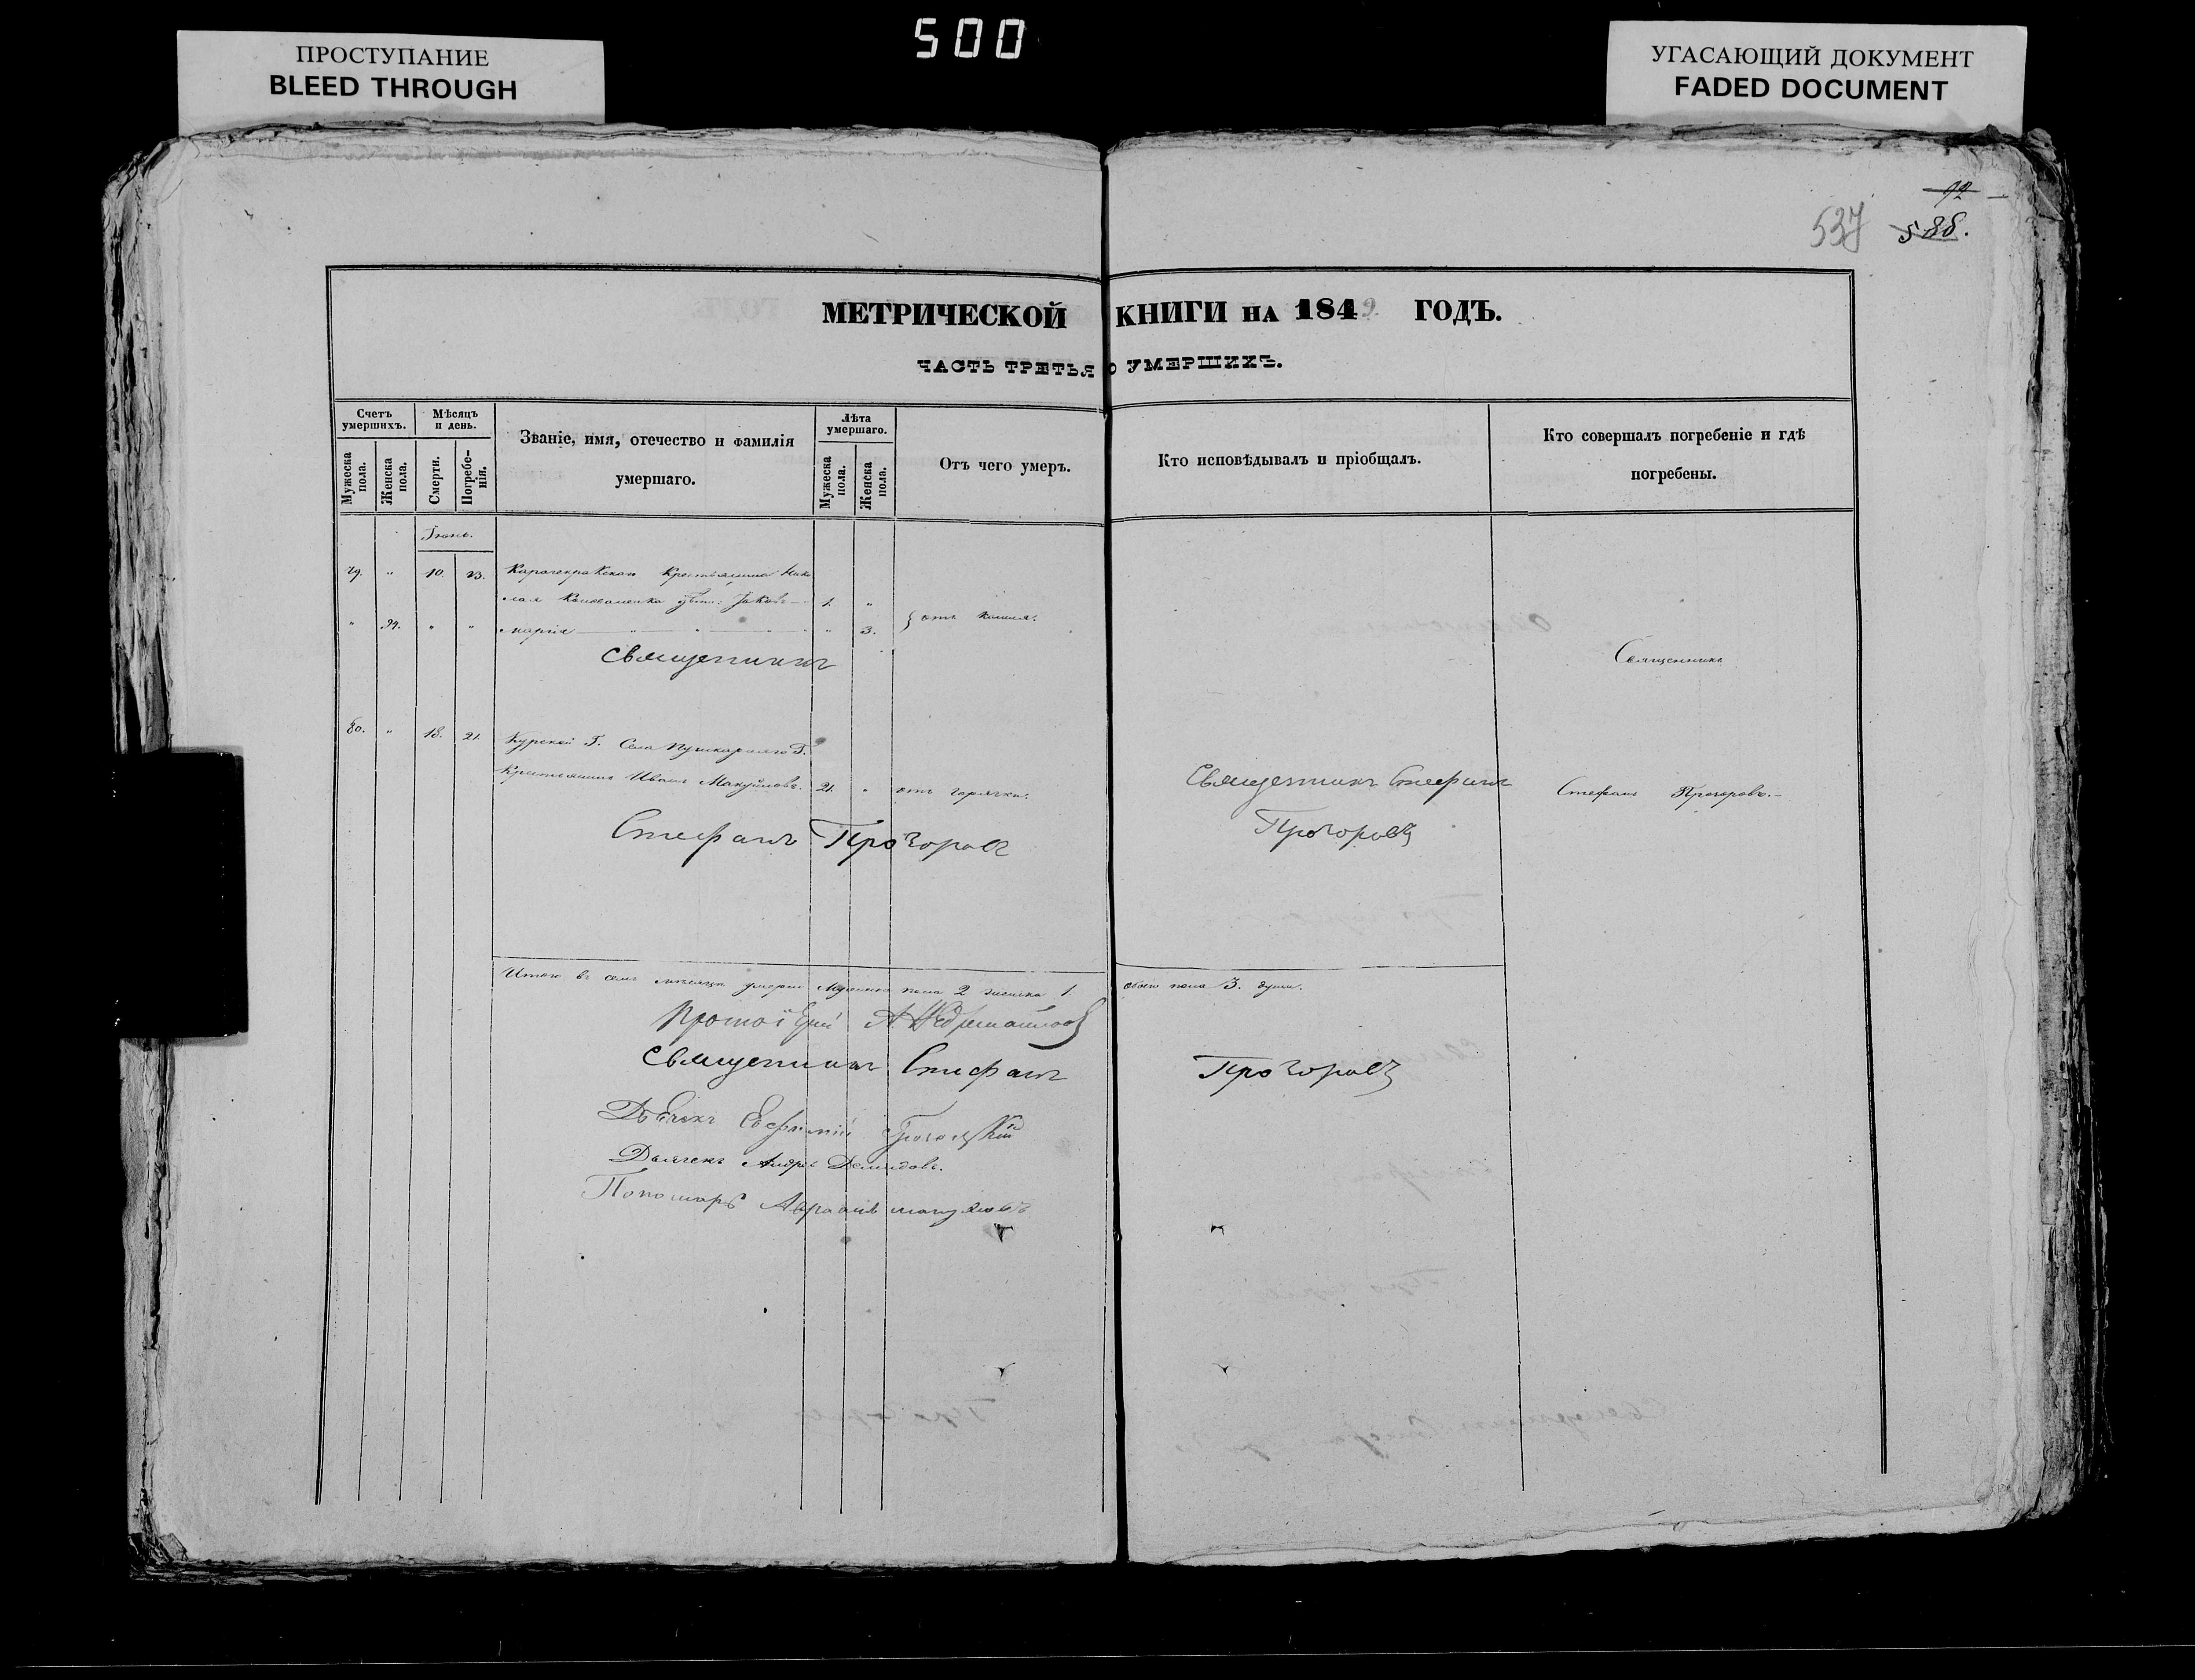 500
ПРОСТУПАНИЕ
BLEED THROUGH
УГАСАЮЩИЙ ДОКУМЕНТ
FADED DOCUMENT
92
537 588.
МЕТРИЧЕСКОЙ КНИГИ НА 1849. ГОДЪ.
ЧАСТЬ ТРЕТЬЯ О УМЕРШИХЪ.
Счетъ умершихъ.
Мужеска пола.
Женска пола.
Мѣсяцъ и день.
Смерти.
Погребенія.
Званіе, имя, отечество и фамилія
умершаго.
Лѣта умершаго.
Мужеска пола.
Женска пола.
Отъ чего умеръ.
Кто исповѣдывалъ и пріобщалъ.
Кто совершалъ погребеніе и гдѣ
погребены.
Іюнь.
79. " 10. 23. Крестьянина Нико
лая дѣти: Іаковъ 1. "
" 94. " " Марія " " 3. } отъ кашля.
Священникъ
Священникъ
80. " 18. 21. Курской Г. Села Г.
Крестьянинъ Иванъ 21. " отъ горячки.
Священникъ Стефанъ
Прозоровъ
Стефанъ Прозоровъ.
Стефанъ Прозоровъ
Итого въ семъ мѣсяцѣ умерли Мужеска пола 2 женска 1 обоего пола 3. души.
Протоіерей А.
Священникъ Стефанъ Прозоровъ
Евфимій
Дьячекъ Андрей Демидовъ.
Пономарь